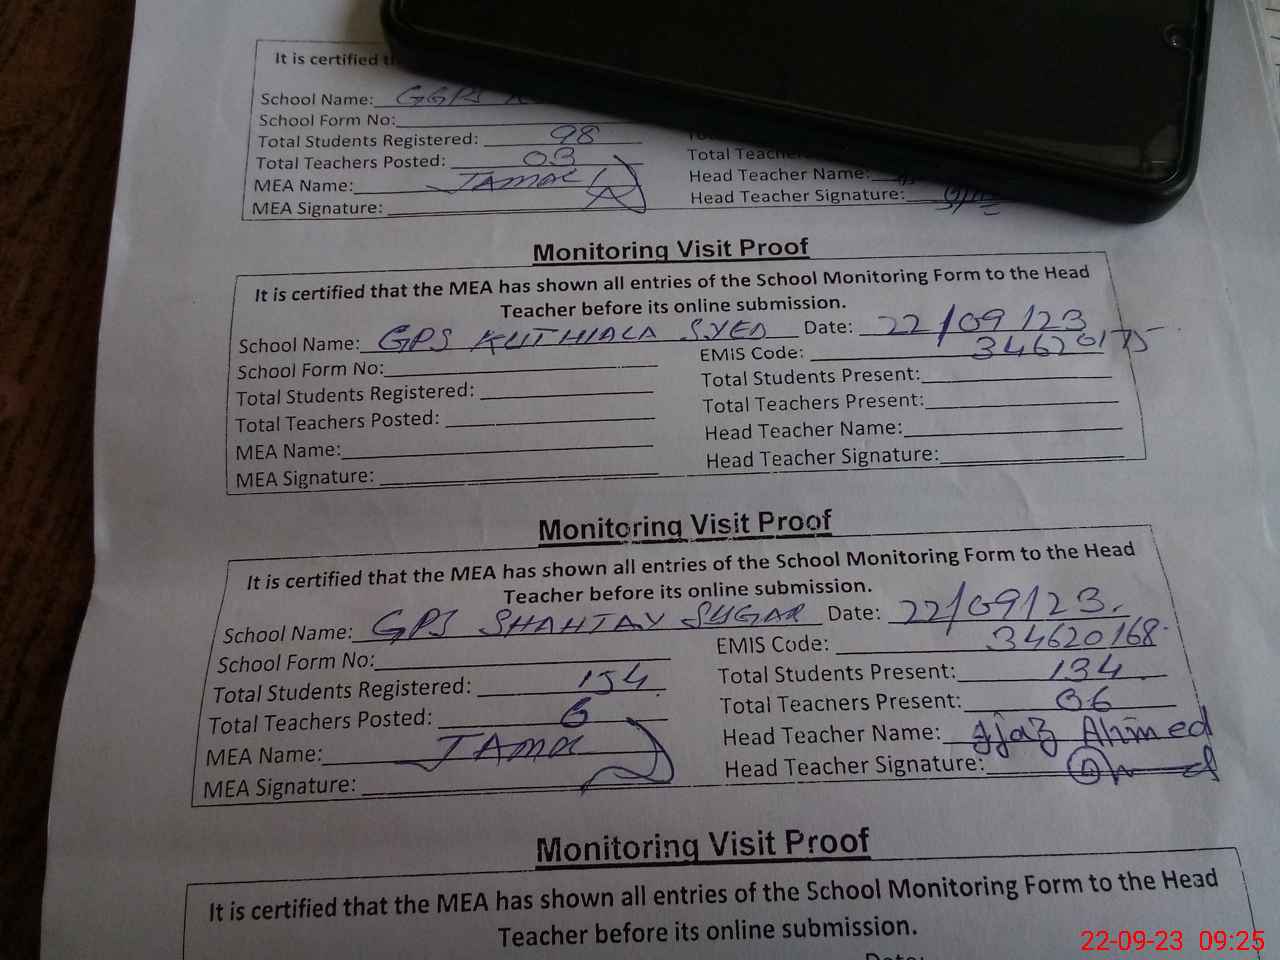 It is certified
School Name: GGPS
School Form No:
Total Students Registered: 98
Total Teachers Posted: 03 Total
MEA Name: JAMAL Head Teacher Name:
MEA Signature: Head Teacher Signature:
Monitoring Visit Proof
It is certified that the MEA has shown all entries of the School Monitoring Form to the Head
Teacher before its online submission.
School Name: GPS KUTHIALA SYED Date: 22/09/23
School Form No: EMIS Code: 34620175
Total Students Registered: Total Students Present:
Total Teachers Posted: Total Teachers Present:
MEA Name: Head Teacher Name:
MEA Signature: Head Teacher Signature:
Monitoring Visit Proof
It is certified that the MEA has shown all entries of the School Monitoring Form to the Head
Teacher before its online submission.
School Name: GPS SHAHTAV SUGAR Date: 22/09/23.
School Form No: EMIS Code: 34620168
Total Students Registered: 154 Total Students Present: 134
Total Teachers Posted: 6 Total Teachers Present: 06
MEA Name: JAMAL Head Teacher Name: Ijaz Ahmed
MEA Signature: Head Teacher Signature:
Monitoring Visit Proof
It is certified that the MEA has shown all entries of the School Monitoring Form to the Head
Teacher before its online submission.
Date:
22-09-23 09:25